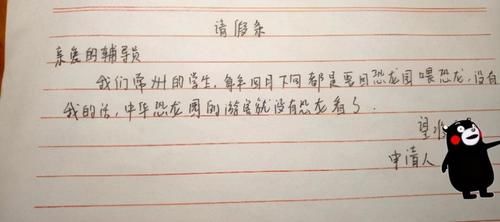 请假条
亲爱的辅导员
我们常州的学生，每年四月下旬都是要回恐龙园喂恐龙，没有
我的话，中华恐龙园的游客就没有恐龙看了．
望
申请人